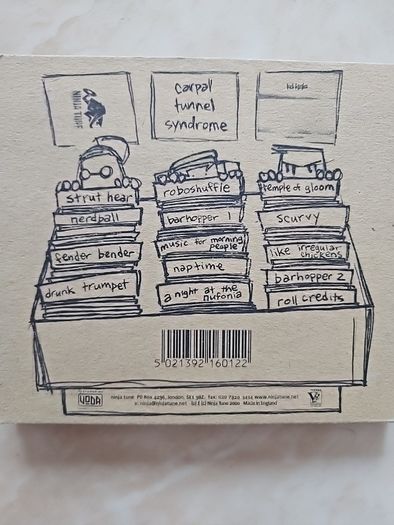 NINJA TUNE
carpal
tunnel
syndrome
strut hear
nerdball
fender bender
drunk trumpet
roboshuffle
barhopper 1
music for morning
people
naptime
a night at the
nufonia
temple of gloom
scurvy
like irregular
chickens
barhopper 2
roll credits
5 021392 160122
VODA
ninja tune PO Box 4296, london, SE1 3BZ. fax:
e: ninja@ninjatune.net (p) & (c) Ninja Tune 2000 Made in England